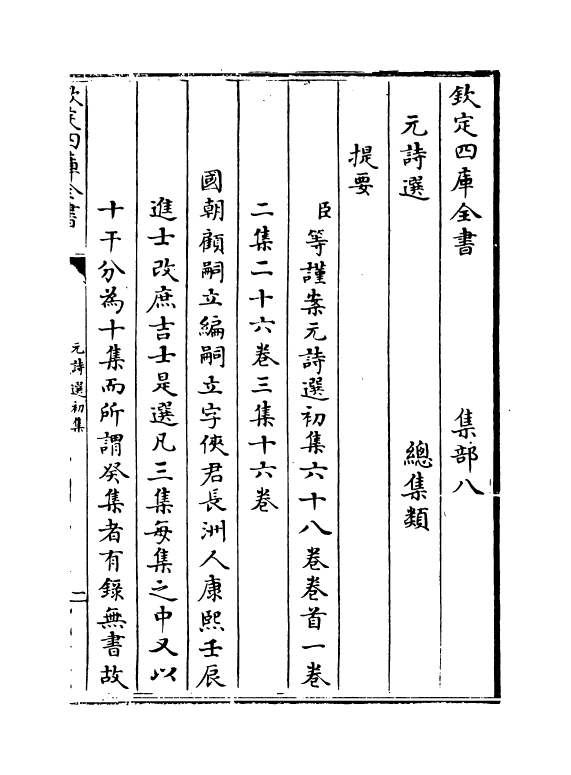 欽定四庫全書 集部八
元詩選 總集類
提要
臣等謹案元詩選初集六十八卷卷首一卷
二集二十六卷三集十六卷
國朝顧嗣立編嗣立字俠君長洲人康熙壬辰
進士改庶吉士是選凡三集每集之中又以
十干分為十集而所謂癸集者有錄無書故
欽定四庫全書
元詩選初集